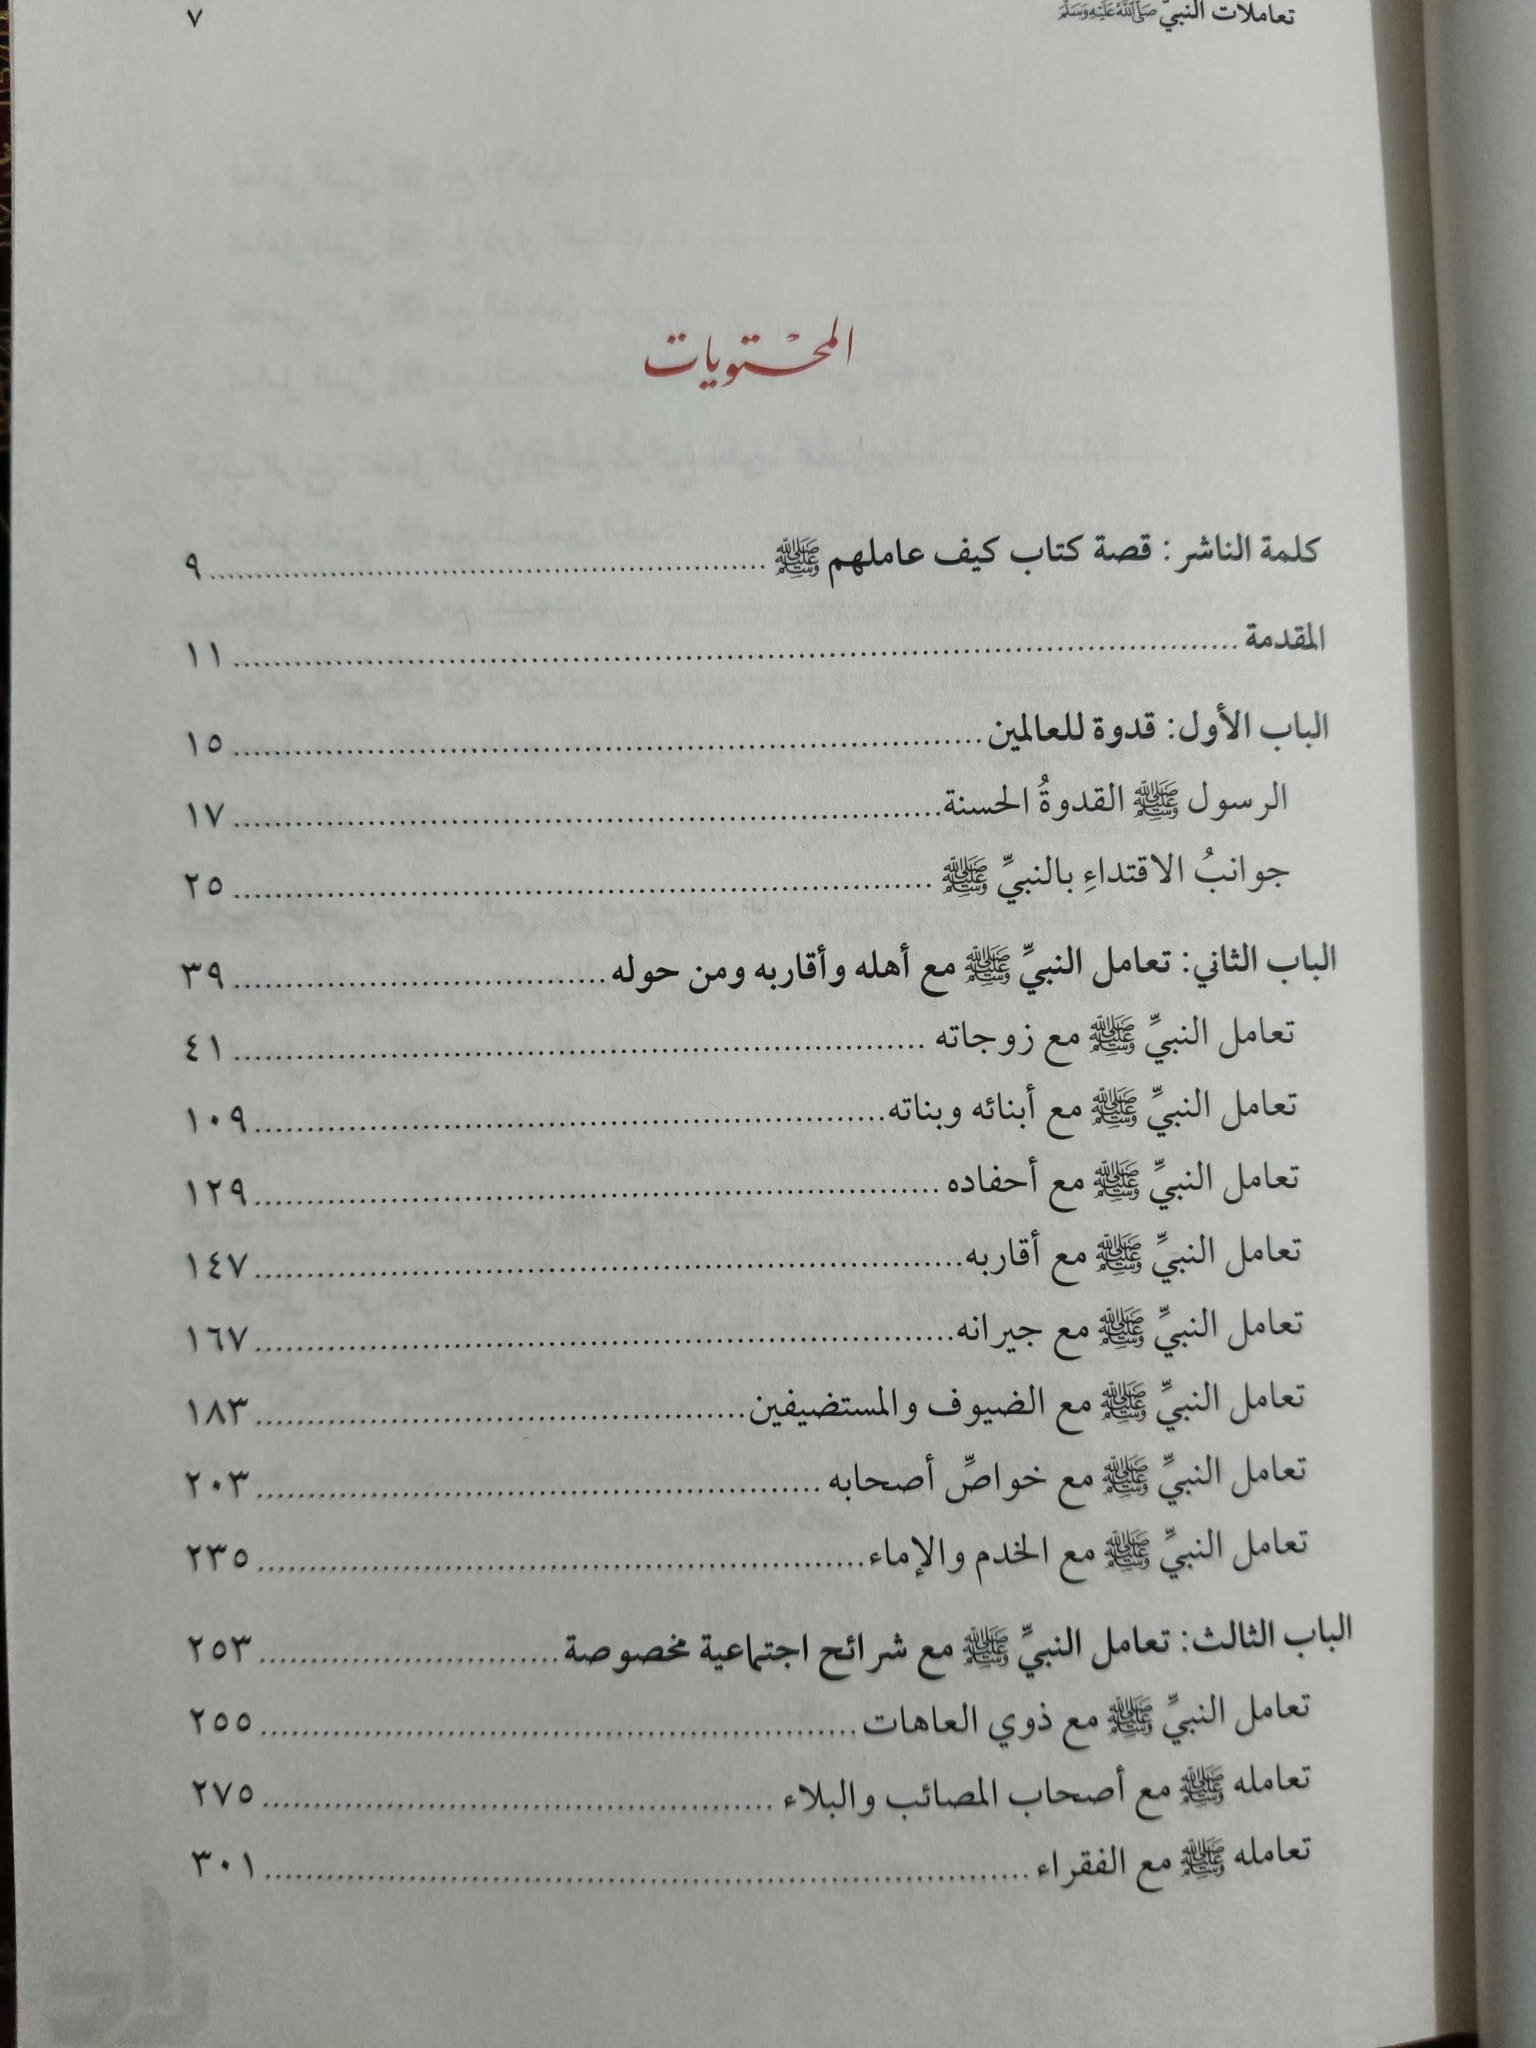 تعاملات النبيِّ صَلَّى اللَّهُ عَلَيْهِ وَسَلَّمَ ٧
المحتويات
كلمة الناشر: قصة كتاب كيف عاملهم ﷺ ........ ٩
المقدمة ........ ١١
الباب الأول: قدوة للعالمين ........ ١٥
الرسول ﷺ القدوةُ الحسنة ........ ١٧
جوانبُ الاقتداءِ بالنبيِّ ﷺ ........ ٢٥
الباب الثاني: تعامل النبيِّ ﷺ مع أهله وأقاربه ومن حوله ........ ٣٩
تعامل النبيِّ ﷺ مع زوجاته ........ ٤١
تعامل النبيِّ ﷺ مع أبنائه وبناته ........ ١٠٩
تعامل النبيِّ ﷺ مع أحفاده ........ ١٢٩
تعامل النبيِّ ﷺ مع أقاربه ........ ١٤٧
تعامل النبيِّ ﷺ مع جيرانه ........ ١٦٧
تعامل النبيِّ ﷺ مع الضيوف والمستضيفين ........ ١٨٣
تعامل النبيِّ ﷺ مع خواصِّ أصحابه ........ ٢٠٣
تعامل النبيِّ ﷺ مع الخدم والإماء ........ ٢٣٥
الباب الثالث: تعامل النبيِّ ﷺ مع شرائح اجتماعية مخصوصة ........ ٢٥٣
تعامل النبيِّ ﷺ مع ذوي العاهات ........ ٢٥٥
تعامله ﷺ مع أصحاب المصائب والبلاء ........ ٢٧٥
تعامله ﷺ مع الفقراء ........ ٣٠١